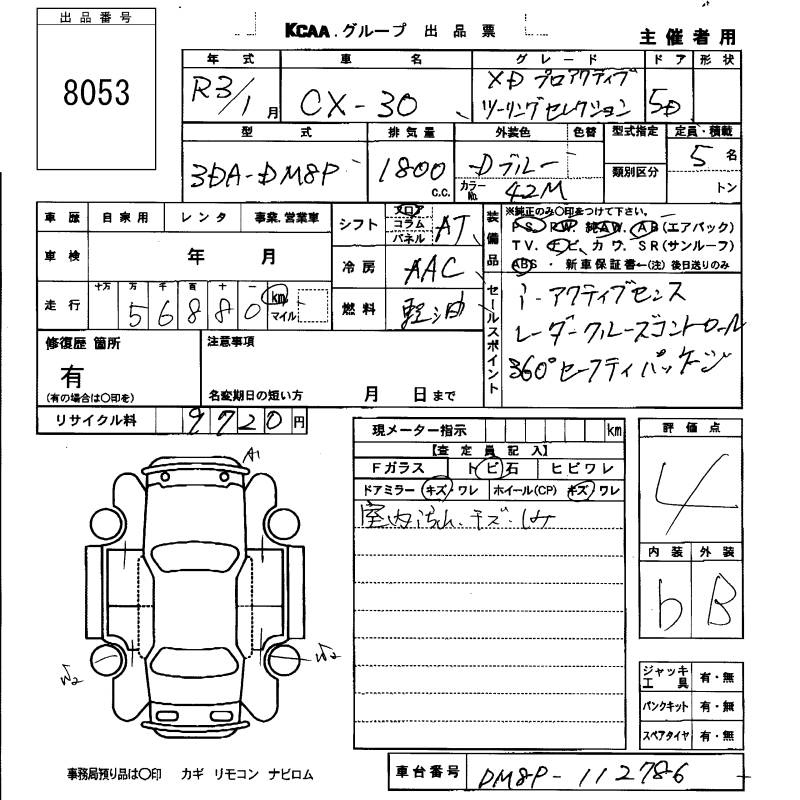 出品番号
8053
KCAA.グループ 出品票
主催者用
年式 車名 グレード ドア 形状
R3/1月 CX-30 XD プロアクティブ
ツーリングセレクション 5D
型式 排気量 外装色 色替 型式指定 定員・積載
3DA-DM8P 1800 c.c. Dブルー 5名
カラーNo. 42M 類別区分 トン
車歴 自家用 レンタ 事業.営業車
車検 年 月
走行 十万 万 千 百 十 一
56880 km マイル
シフト フロア コラム パネル AT
冷房 AAC
燃料 軽油
装備品 ※純正のみ〇印をつけて下さい。
PS. PW. 純AW. AB(エアバック)
TV. ナビ. カワ. SR(サンルーフ)
ABS・新車保証書←(注)後日送りのみ
セールスポイント
i-アクティブセンス
レーダークルーズコントロール
360°セーフティパッケージ
修復歴 箇所
有
(有の場合は〇印を)
注意事項
名変期日の短い方 月 日まで
リサイクル料 9720円
現メーター指示 km
【査定員記入】
Fガラス トビ石 ヒビワレ
ドアミラー キズ・ワレ ホイール(CP) キズ・ワレ
室内汚れ.キズ.しみ
評価点
4
内装 外装
b B
ジャッキ工具 有・無
パンクキット 有・無
スペアタイヤ 有・無
A1
W2
W2
事務局預り品は〇印 カギ リモコン ナビロム
車台番号 DM8P-112786